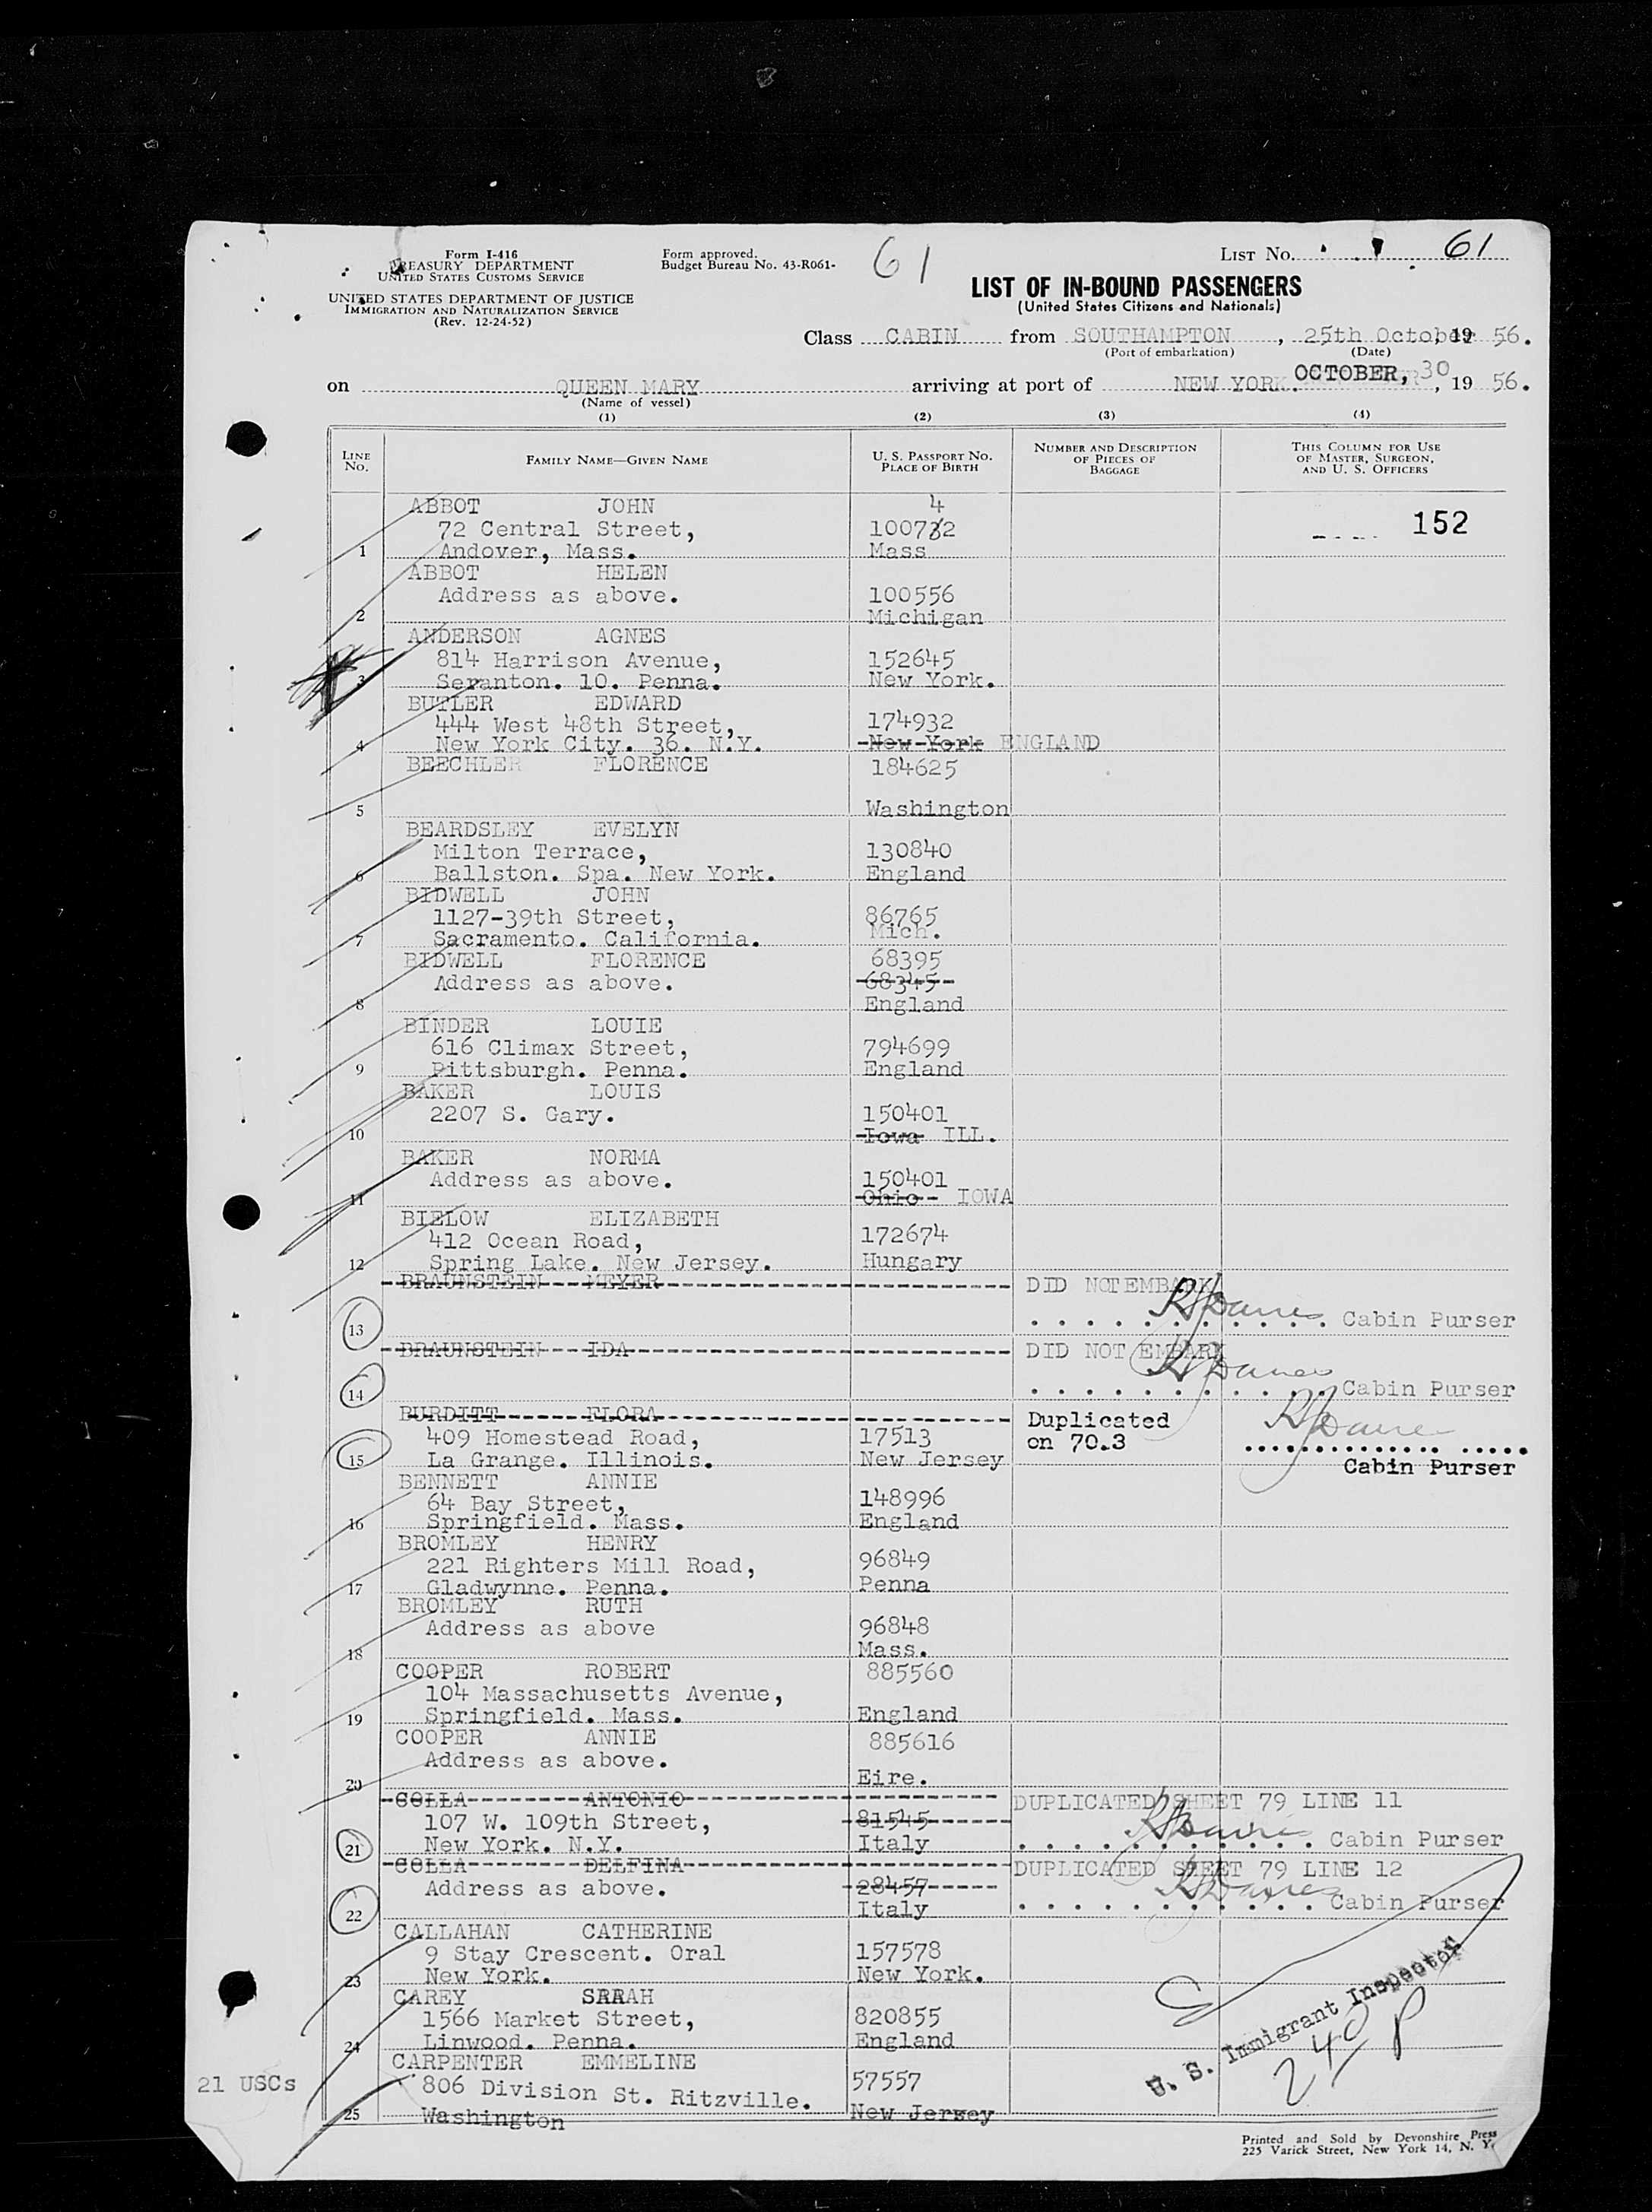 Form I-416
TREASURY DEPARTMENT
UNITED STATES CUSTOMS SERVICE
UNITED STATES DEPARTMENT OF JUSTICE
IMMIGRATION AND NATURALIZATION SERVICE
(Rev. 12-24-52)
Form approved.
Budget Bureau No. 43-R061-
61
LIST No. 61
LIST OF IN-BOUND PASSENGERS
(United States Citizens and Nationals)
Class CABIN from SOUTHAMPTON, 25th October 19 56.
(Port of embarkation) (Date)
on QUEEN MARY arriving at port of NEW YORK. OCTOBER, 30, 19 56.
(Name of vessel)
(1) (2) (3) (4)
LINE No. FAMILY NAME—GIVEN NAME U. S. PASSPORT NO. PLACE OF BIRTH NUMBER AND DESCRIPTION OF PIECES OF BAGGAGE THIS COLUMN FOR USE OF MASTER, SURGEON, AND U. S. OFFICERS
ABBOT JOHN 4
72 Central Street, 100732 152
1 Andover, Mass. Mass
ABBOT HELEN
Address as above. 100556
2 Michigan
ANDERSON AGNES
814 Harrison Avenue, 152645
3 Seranton. 10. Penna. New York.
BUTLER EDWARD
444 West 48th Street, 174932
4 New York City. 36. N.Y. New York ENGLAND
BEECHLER FLORENCE 184625
5 Washington
BEARDSLEY EVELYN
Milton Terrace, 130840
6 Ballston. Spa. New York. England
BIDWELL JOHN
1127-39th Street, 86765
7 Sacramento. California. Mich.
BIDWELL FLORENCE 68395
Address as above. 68345
8 England
BINDER LOUIE
616 Climax Street, 794699
9 Pittsburgh. Penna. England
BAKER LOUIS
2207 S. Gary. 150401
10 Iowa ILL.
BAKER NORMA
Address as above. 150401
11 Ohio IOWA
BIELOW ELIZABETH
412 Ocean Road, 172674
12 Spring Lake. New Jersey. Hungary
BRAUNSTEIN MEYER DID NOT EMBARK
13 Cabin Purser
BRAUNSTEIN IDA DID NOT EMBARK
14 Cabin Purser
BURDITT FLORA Duplicated
409 Homestead Road, 17513 on 70.3
15 La Grange. Illinois. New Jersey Cabin Purser
BENNETT ANNIE
64 Bay Street, 148996
16 Springfield. Mass. England
BROMLEY HENRY
221 Righters Mill Road, 96849
17 Gladwynne. Penna. Penna
BROMLEY RUTH
Address as above 96848
18 Mass.
COOPER ROBERT 885560
104 Massachusetts Avenue,
19 Springfield. Mass. England
COOPER ANNIE 885616
Address as above.
20 Eire.
COLLA ANTONIO DUPLICATED SHEET 79 LINE 11
107 W. 109th Street, 81545
21 New York. N.Y. Italy Cabin Purser
COLLA DELFINA DUPLICATED SHEET 79 LINE 12
Address as above. 28457
22 Italy Cabin Purser
CALLAHAN CATHERINE
9 Stay Crescent. Oral 157578
23 New York. New York.
CAREY SARAH
1566 Market Street, 820855
24 Linwood. Penna. England
CARPENTER EMMELINE
806 Division St. Ritzville. 57557
25 Washington New Jersey
21 USCs
U. S. Immigrant Inspector
240 P
Printed and Sold by Devonshire Press
225 Varick Street, New York 14, N. Y.